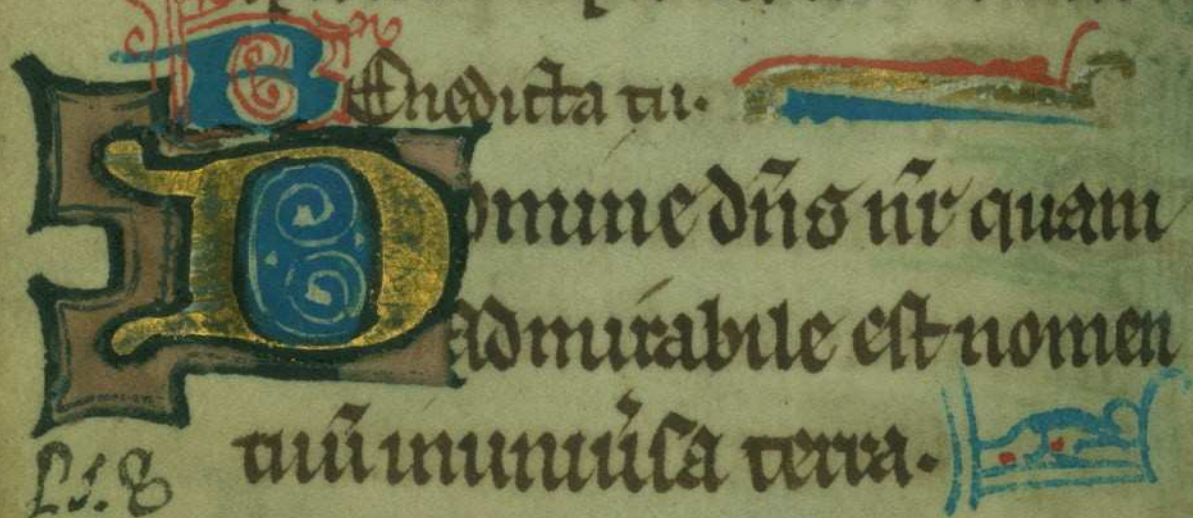 Benedicta tu.
Domine dñs nr̃ quam
admirabile est nomen
tuũ inuniũsa terra.
Ps. 8